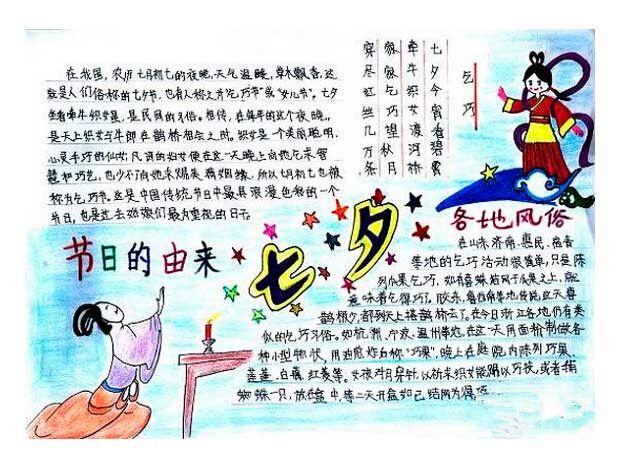 在我国,农历七月初七的夜晚,天气温暖,草木飘香,这
就是人们俗称的七夕节,也有人称之为“乞巧节”或“女儿节”。七夕
坐看牵牛织女星,是民间的习俗。相传,在每年的这个夜晚,
是天上织女与牛郎在鹊桥相会之时。织女是一个美丽聪明、
心灵手巧的仙女,凡间的妇女便在这一天晚上向她乞求智
慧和巧艺,也少不了向她求赐美满姻缘,所以七月初七也被
称为乞巧节。这是中国传统节日中最具浪漫色彩的一个
节日,也是过去姑娘们最为重视的日子。
乞巧
七夕今宵看碧霄
牵牛织女渡河桥
家家乞巧望秋月
穿尽红丝几万条
节日的由来
七夕
各地风俗
在山东济南、惠民、高青
等地的乞巧活动很简单,只是陈
列瓜果乞巧,如有喜蛛结网于瓜果之上,就
意味着乞得巧了。胶东、鲁西南等地传说,此天喜
鹊极少,都到天上搭鹊桥去了。在今日浙江各地仍有类
似的乞巧习俗。如杭州、宁波、温州等地,在这一天用面粉制做各
种小型物状,用油煎炸后称“巧果”,晚上在庭院内陈列巧果、
莲蓬、白藕、红菱等。女孩对月穿针,以祈求织女能赐以巧技,或者捕
蜘蛛一只,放在盒中,第二天开盒如已结网为得巧